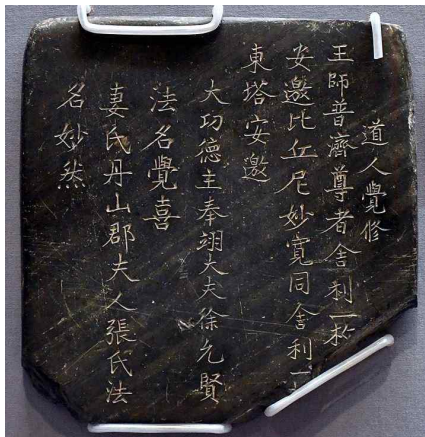 道人覺修
王師普濟尊者舍利一枚
安邀比丘尼妙寬同舍利一
東塔安邀
大功德主奉翊大夫徐允賢
法名覺喜
妻氏丹山郡夫人張氏法
名妙然